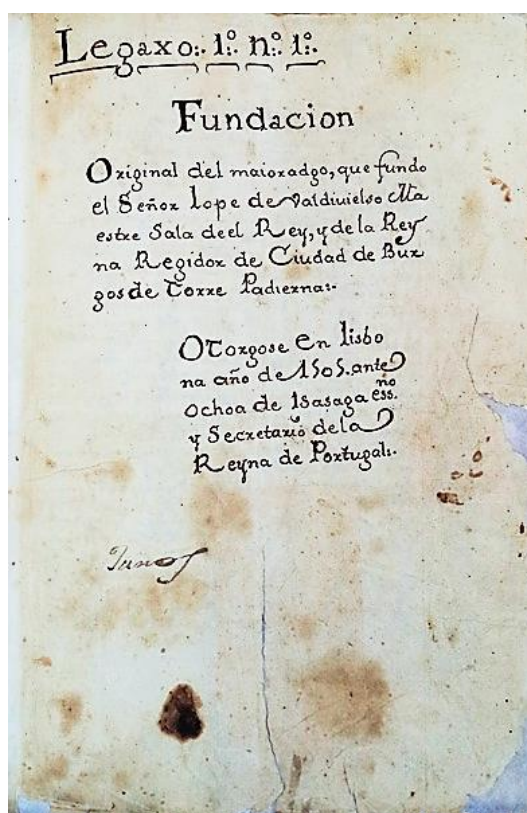 Legaxo:. 1º. nº. 1º.
Fundacion
Original del maioradgo, que fundo
el Señor lope de Valdiuielso Ma
estre Sala de el Rey, y de la Rey
na Regidor de Ciudad de Bur
gos de Torre Padierna:.
Otorgose en lisbo
na año de 1505. ante
Ochoa de Isasaga ess.no
y Secretario de la
Reyna de Portugal:.